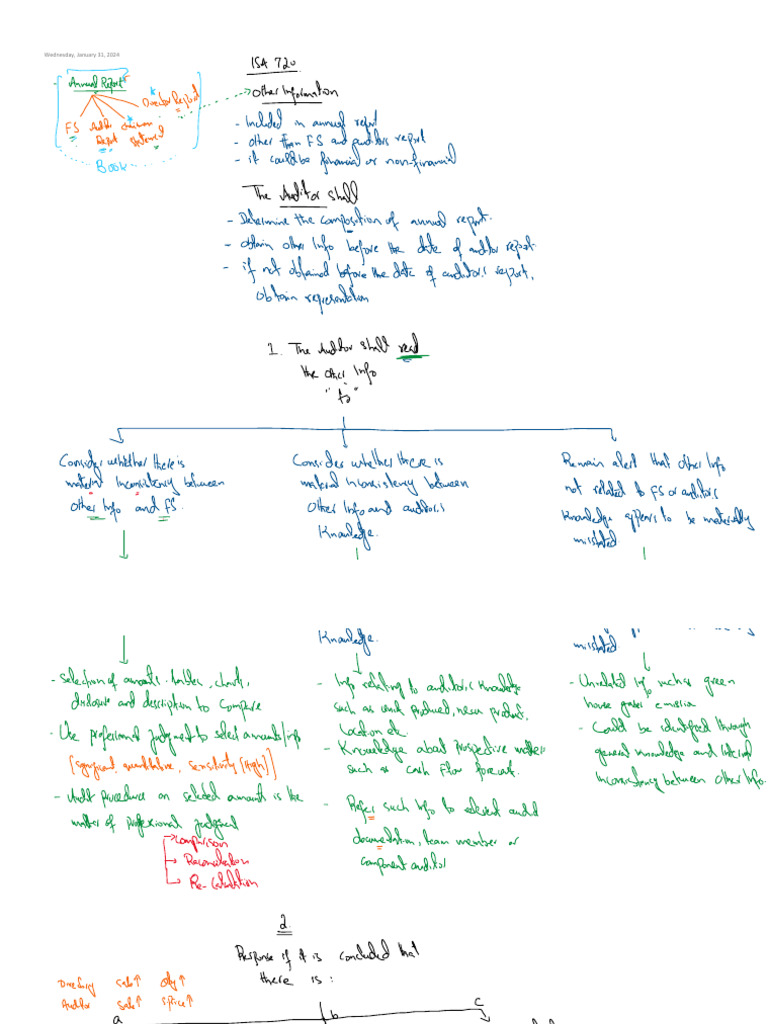 Wednesday, January 31, 2024
ISA 720
Annual Report
Director Report
FS Auditor Chairman
Report Statement
Book
Other Information
- Included in annual report
- other than FS and auditors report
- it could be financial or non-financial
The Auditor shall
- Determine the composition of annual report.
- obtain other info before the date of auditor report.
- if not obtained before the date of auditor's report,
obtain representation
1. The Auditor shall read
the other Info
"to"
Consider whether there is
material inconsistency between
other Info and FS.
Consider whether there is
material inconsistency between
Other Info and auditor,s
Knowledge.
Remain alert that other Info
not related to FS or auditor,s
Knowledge appears to be materially
misstated
Knowledge.
misstated
- Selection of amounts, tables, charts,
disclosure and description to compare
- Use professional judgment to select amounts/info
[significant, quantitative, sensitivity (High)]
- Audit procedure on selected amounts is the
matter of professional judgment
Comparison
Reconciliation
Re-calculation
- Info relating to auditor,s knowledge
such as unit produced, new product,
Location etc.
- Knowledge about prospective matters
such as cash flow forecast.
- Refer such Info to relevant audit
documentation, team member or
component auditor
- Unrelated info such as green
house gases emission
- Could be identified through
general knowledge and internal
inconsistency between other Info.
2
Response if it is concluded that
there is:
Directory sale↑ Qty↑
Auditor sale↑ S.price↑
a b c